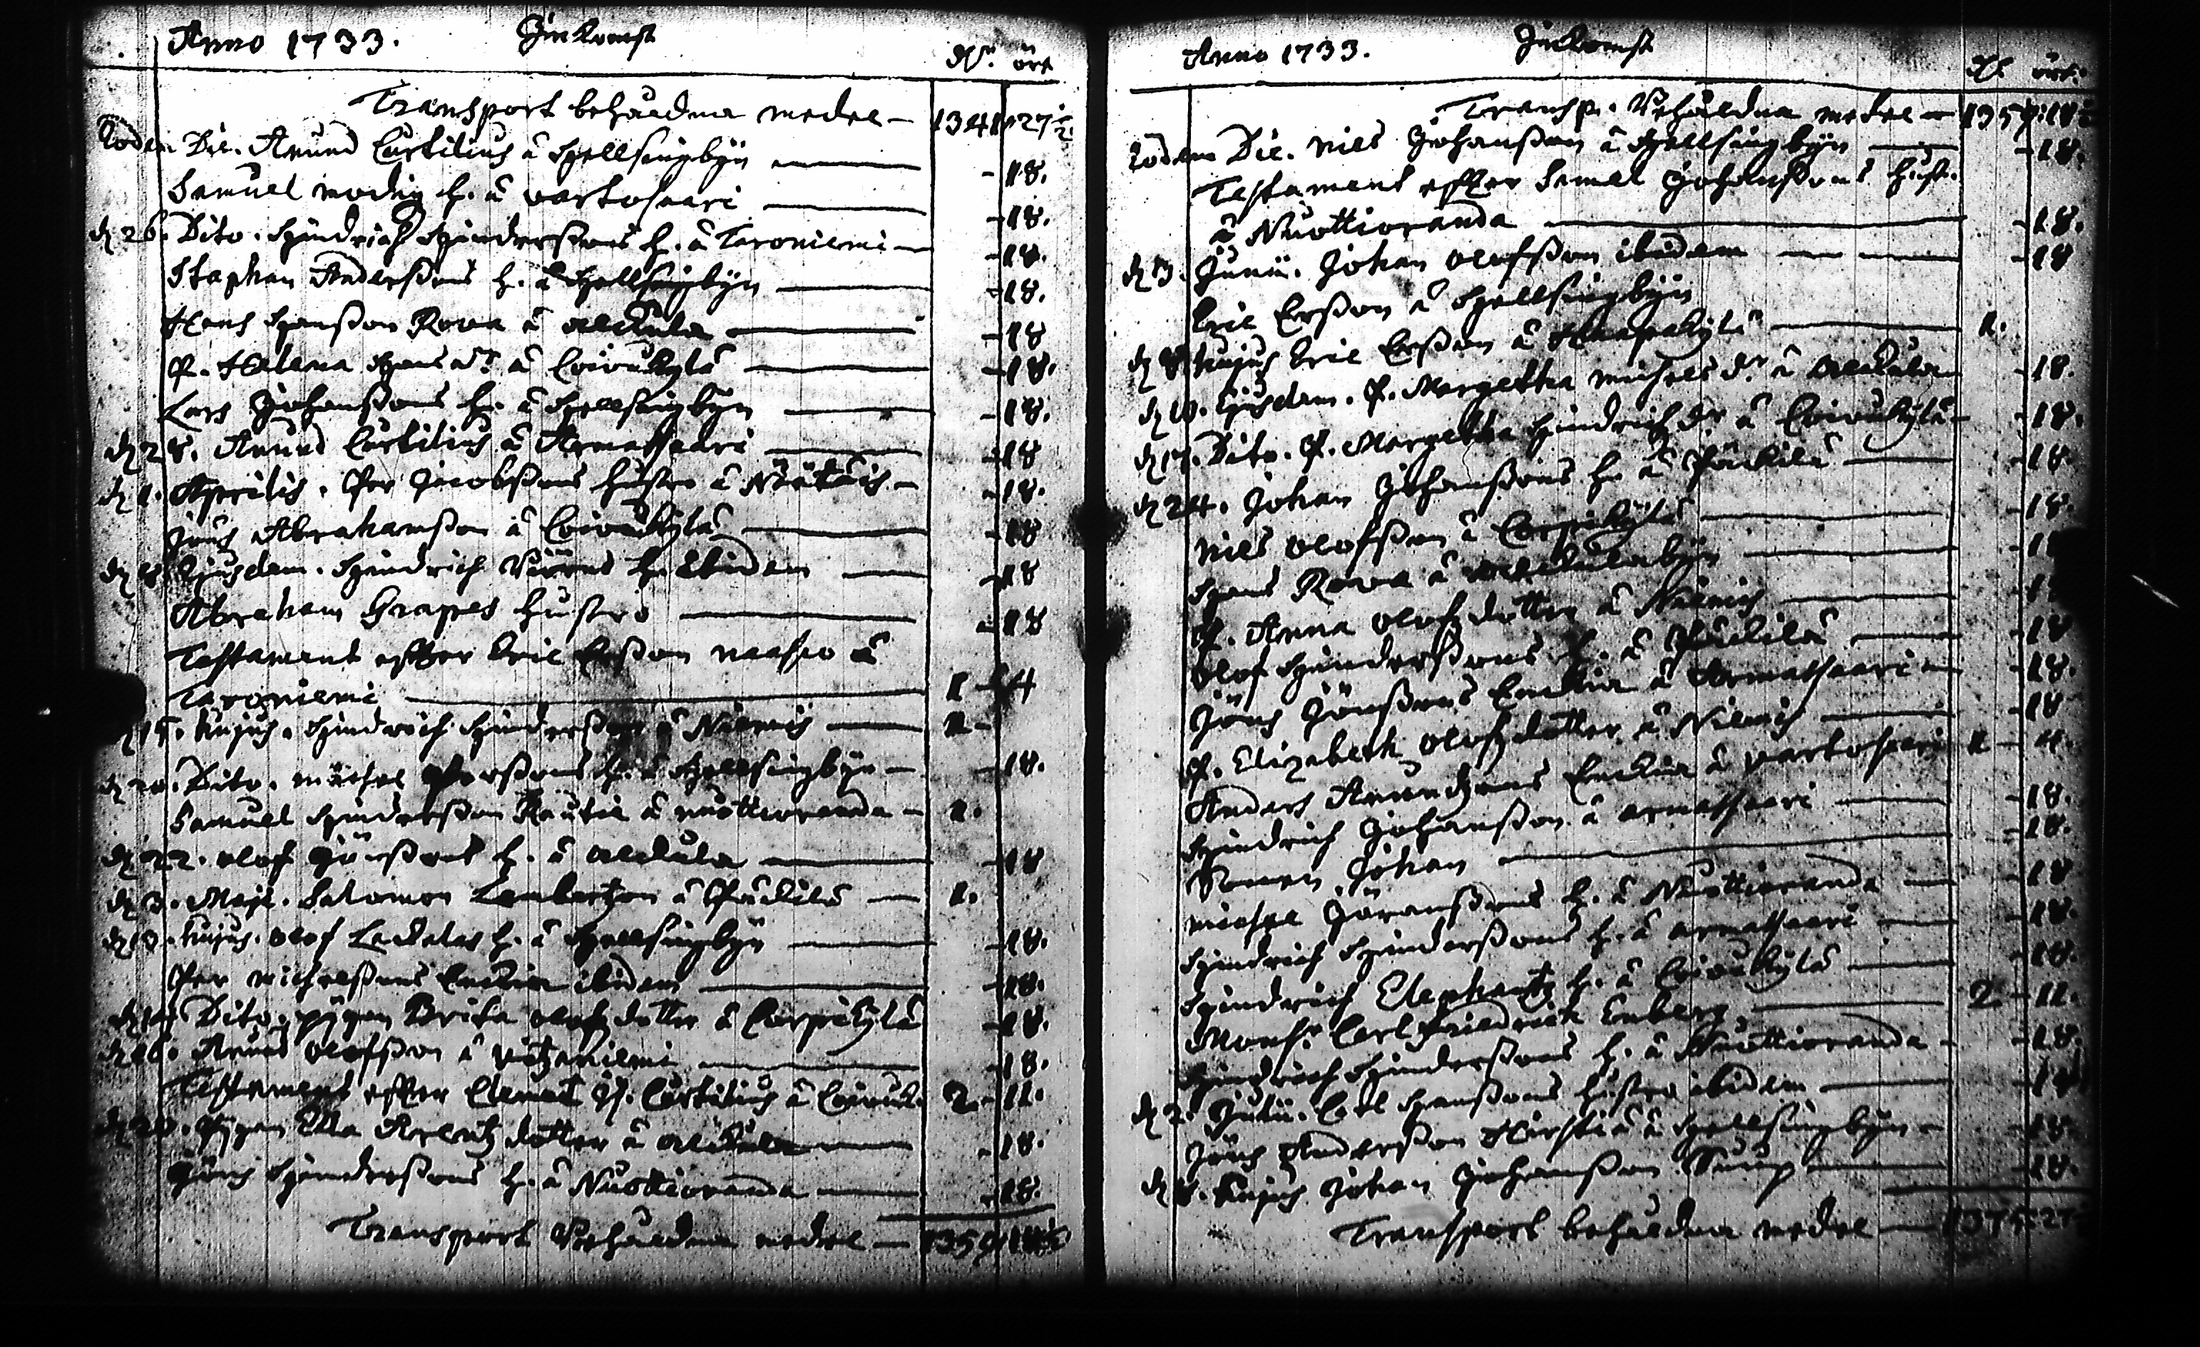 Anno 1733. Jnkomst Dlr. öre
Transport behåldna medel — 1341 27 1/2
Eodem Die. Anund Curtilius å Hellsingbÿn — 18.
Samuel h. å vartosaari — 18.
d 26. Dito. Hindrich Hinderssons h. å Taroniemi — 18.
Staphan Anderssons h. å Hellsingbÿn — 18.
Hans Hansson Rova å Alkula — 18
P. Helena Hans dr. å Coivukÿlä — 18.
Lars Johanssons h. å Hellsingbÿn — 18.
d 28. Anund Curtilius å Armassaari — 18
d 1. Aprilis. Per Jacobssons hustro å — 18.
Jöns Abrahamsson å Coivukÿlä — 18
Ejusdem. Hindrich h. ibidem — 18
Abraham Grapes hustro — 18
Testament effter Eric Ersson å
Taroniemi — 1 4
d 15. hujus. Hindrich Hindersson å Niemis — 1 -
Dito. michel Perssons h. å Hellsingbÿn — 18.
Samuel Hindersson Rautio å nuottioranda — 1.
d 22. Olof Jönssons h. å Alkula — 18
d 3. Maji. Salomon Lambertzon å Päckilä — 1.
hujus. Olof h. å Hellsingbÿn — 18.
Per michelssons Enckia ibidem — 18.
Dito. pigan Brita Olofz dotter å Corpikÿlä 18.
Anund Olofsson å — 18.
Testament effter Clemet Curtilius å Coivuk. 2. 11.
Pigan Ella dotter å Alkula — 18.
Jöns Hinderssons h. å Nuottioranda — 18.
Transport behåldna medel — 1359
Anno 1733. Jnkomst Dlr öre.
Transp. behåldna medel — 1359:
Eodem Die. Niels Johansson å Hellsingbÿn — 18.
Testament effter Samel Johanssons hust.
å Nuottioranda — 18.
d 3. Junii. Johan Olofsson ibidem — 18
Eric Ersson å Hellsingbÿn
d 8. hujus Eric Ersson å Haapakÿlä — 1.
d 10. Ejusdem. P. Margetha michels dr. å Alkula 18.
d 17. Dito. P. Margetha Hindrich dr å Coivukÿlä — 18.
d 24. Johan Johanssons h. å Päckilä — 18.
Niels Olofsson å Corpikÿlä — 18.
Hans Rova å Alkulabÿn —
P. Anna Olofz dotter å Niemis —
Olof Hinderssons h. å Päckilä — 18
Jöns Jönssons Enckia å Armassaari — 18.
P. Elizabeth Olofz dotter å Niemis — 18
Anders Enckia å vartosaari 1 — 4.
Hindrich Johansson å armassaari — 18.
Johan — 18.
michel Jöranssons h. å Nuottioranda — 18
Hindrich Hinderssons h. å armassaari — 18.
Hindrich Elephantz h. å Coivukÿlä — 18.
Monsr. Carl Friedrich Enberg — 2 — 11.
Hindrich Hinderssons h. å Nuottioranda — 18.
d 2. Julii. Carl Hanssons hustro ibidem — 18
Jöns Andersson å Hellsingbÿn — 18.
hujus Johan Johansson — 18.
Transport behåldna medel — 1375:27